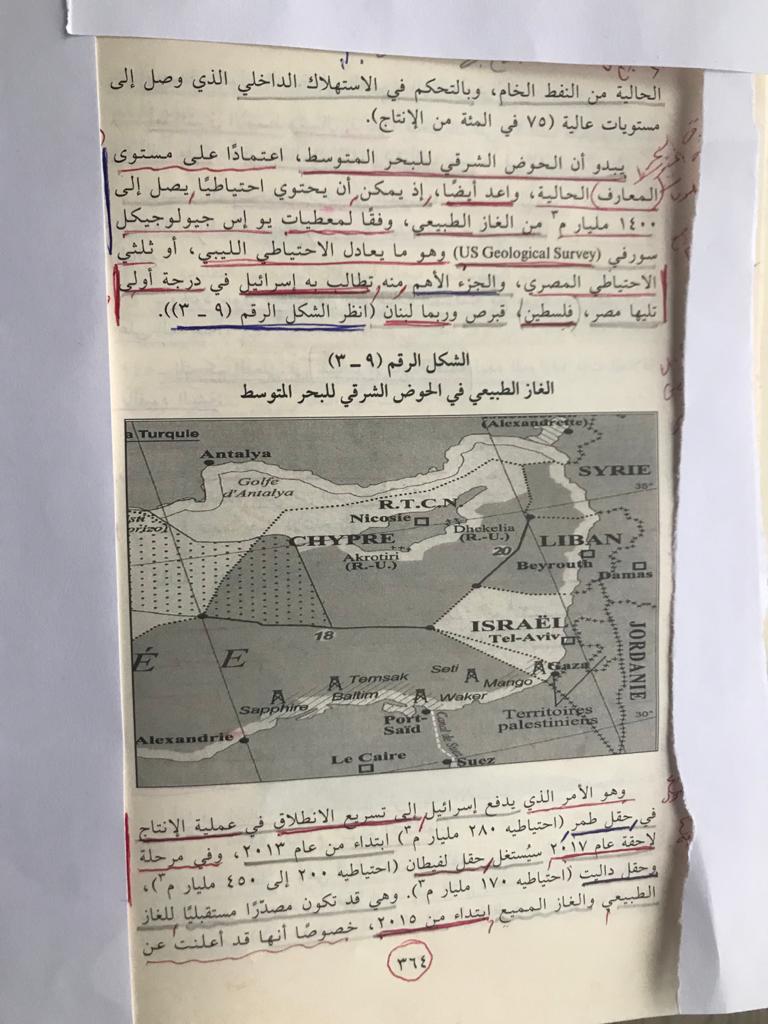 الحالية من النفط الخام، وبالتحكم في الاستهلاك الداخلي الذي وصل إلى
مستويات عالية (٧٥ في المئة من الإنتاج).
يبدو أن الحوض الشرقي للبحر المتوسط، اعتمادًا على مستوى
المعارف الحالية، واعد أيضًا، إذ يمكن أن يحتوي احتياطيًا يصل إلى
١٤٠٠ مليار م٣ من الغاز الطبيعي، وفقًا لمعطيات يو إس جيولوجيكل
سورفي (US Geological Survey) وهو ما يعادل الاحتياطي الليبي، أو ثلثي
الاحتياطي المصري، والجزء الأهم منه تطالب به إسرائيل في درجة أولى
تليها مصر، فلسطين، قبرص وربما لبنان (انظر الشكل الرقم (٩ ـ ٣)).
الشكل الرقم (٩ ـ ٣)
الغاز الطبيعي في الحوض الشرقي للبحر المتوسط
a Turquie
(Alexandrette)
Antalya
SYRIE
Golfe
d'Antalya
35°
R.T.C.N.
Nicosie
Dhekelia
(R.-U.)
CHYPRE
20
LIBAN
Akrotiri
(R.-U.)
Beyrouth
Damas
ISRAËL
18
Tel-Aviv
JORDANIE
É E
Seti
Gaza
Temsak
Mango
Baltim
Waker
Sapphire
Territoires
palestiniens
Port-
Saïd
30°
Alexandrie
Canal de Suez
Le Caire
Suez
وهو الأمر الذي يدفع إسرائيل إلى تسريع الانطلاق في عملية الإنتاج
في حقل طمر (احتياطيه ٢٨٠ مليار م٣) ابتداء من عام ٢٠١٣، وفي مرحلة
لاحقة عام ٢٠١٧ سيُستغل حقل لفيطان (احتياطيه ٢٠٠ إلى ٤٥٠ مليار م٣)،
وحقل داليت (احتياطيه ١٧٠ مليار م٣). وهي قد تكون مصدّرًا مستقبليًا للغاز
الطبيعي والغاز المميع ابتداء من ٢٠١٥، خصوصًا أنها قد أعلنت عن
٣٦٤